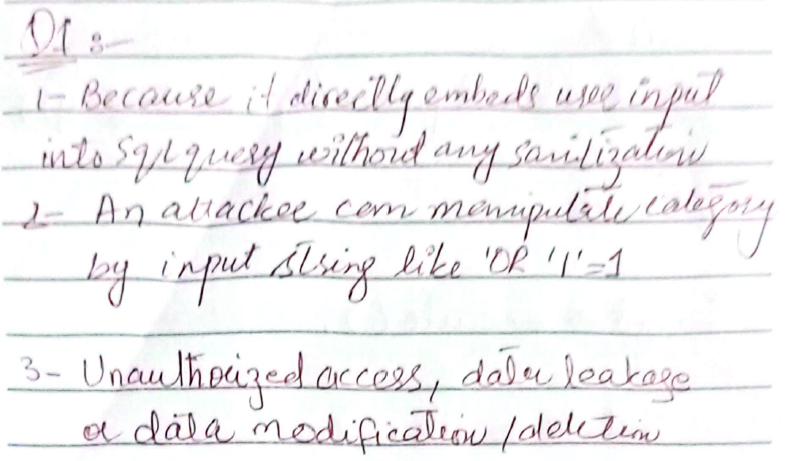 Q1 :-
1- Because it directly embeds user input
into Sql query without any sanitization
2- An attacker can manipulate category
by input string like 'OR '1'=1
3- Unauthorized access, data leakage
or data modification / deletion